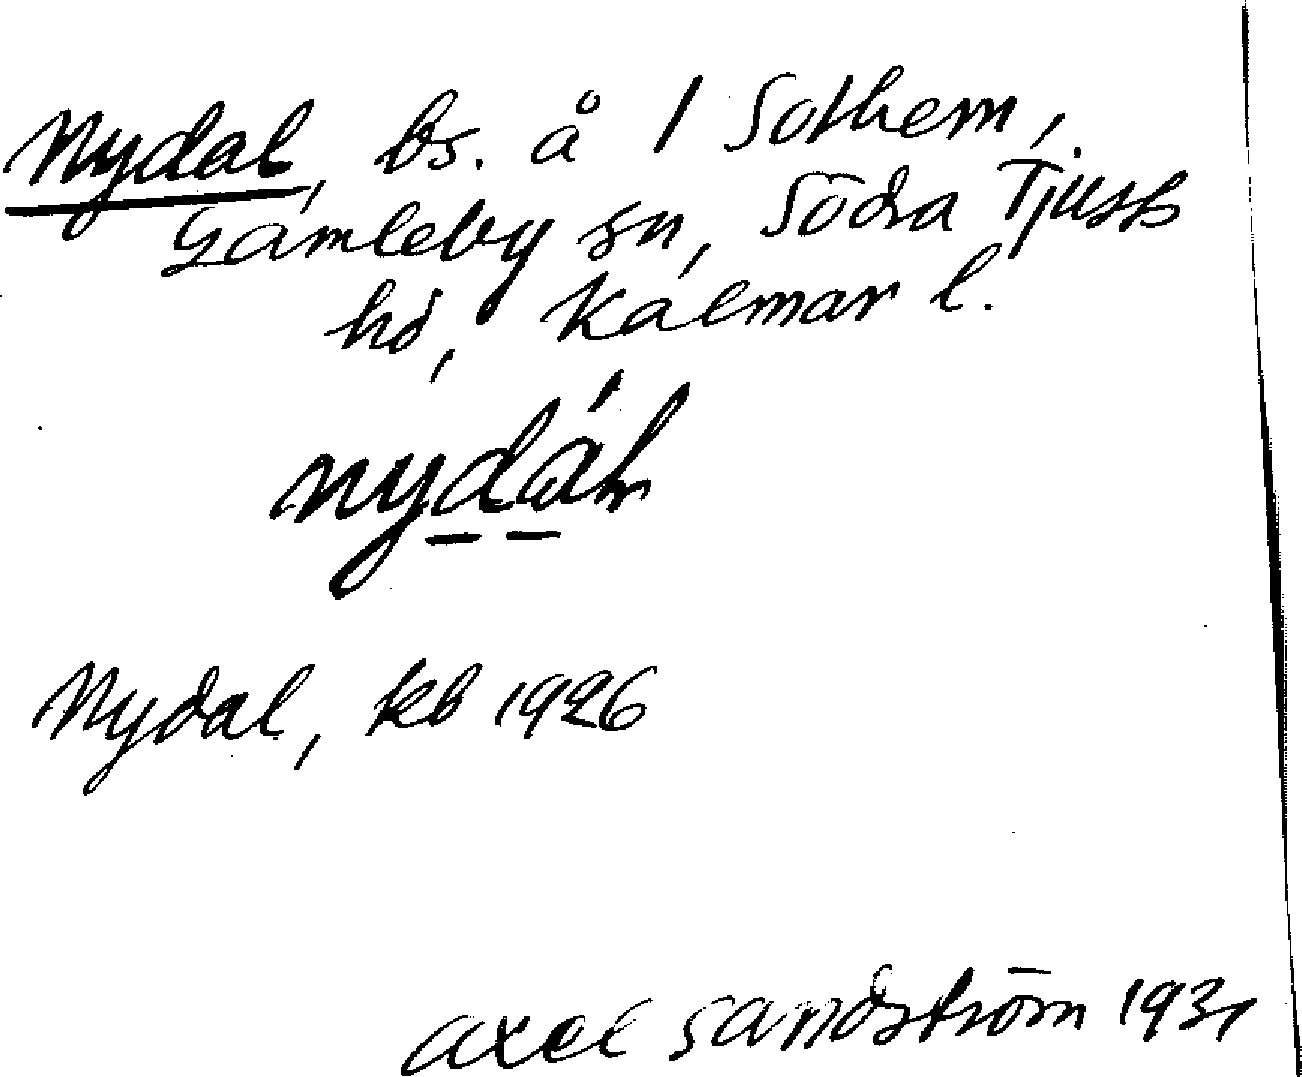 Nydal, bs. å 1 Sothem,
Gamleby sn, Södra Tjusts
hd, Kalmar l.
nydál
Nydal, kb 1926
Axel Sandström 1931